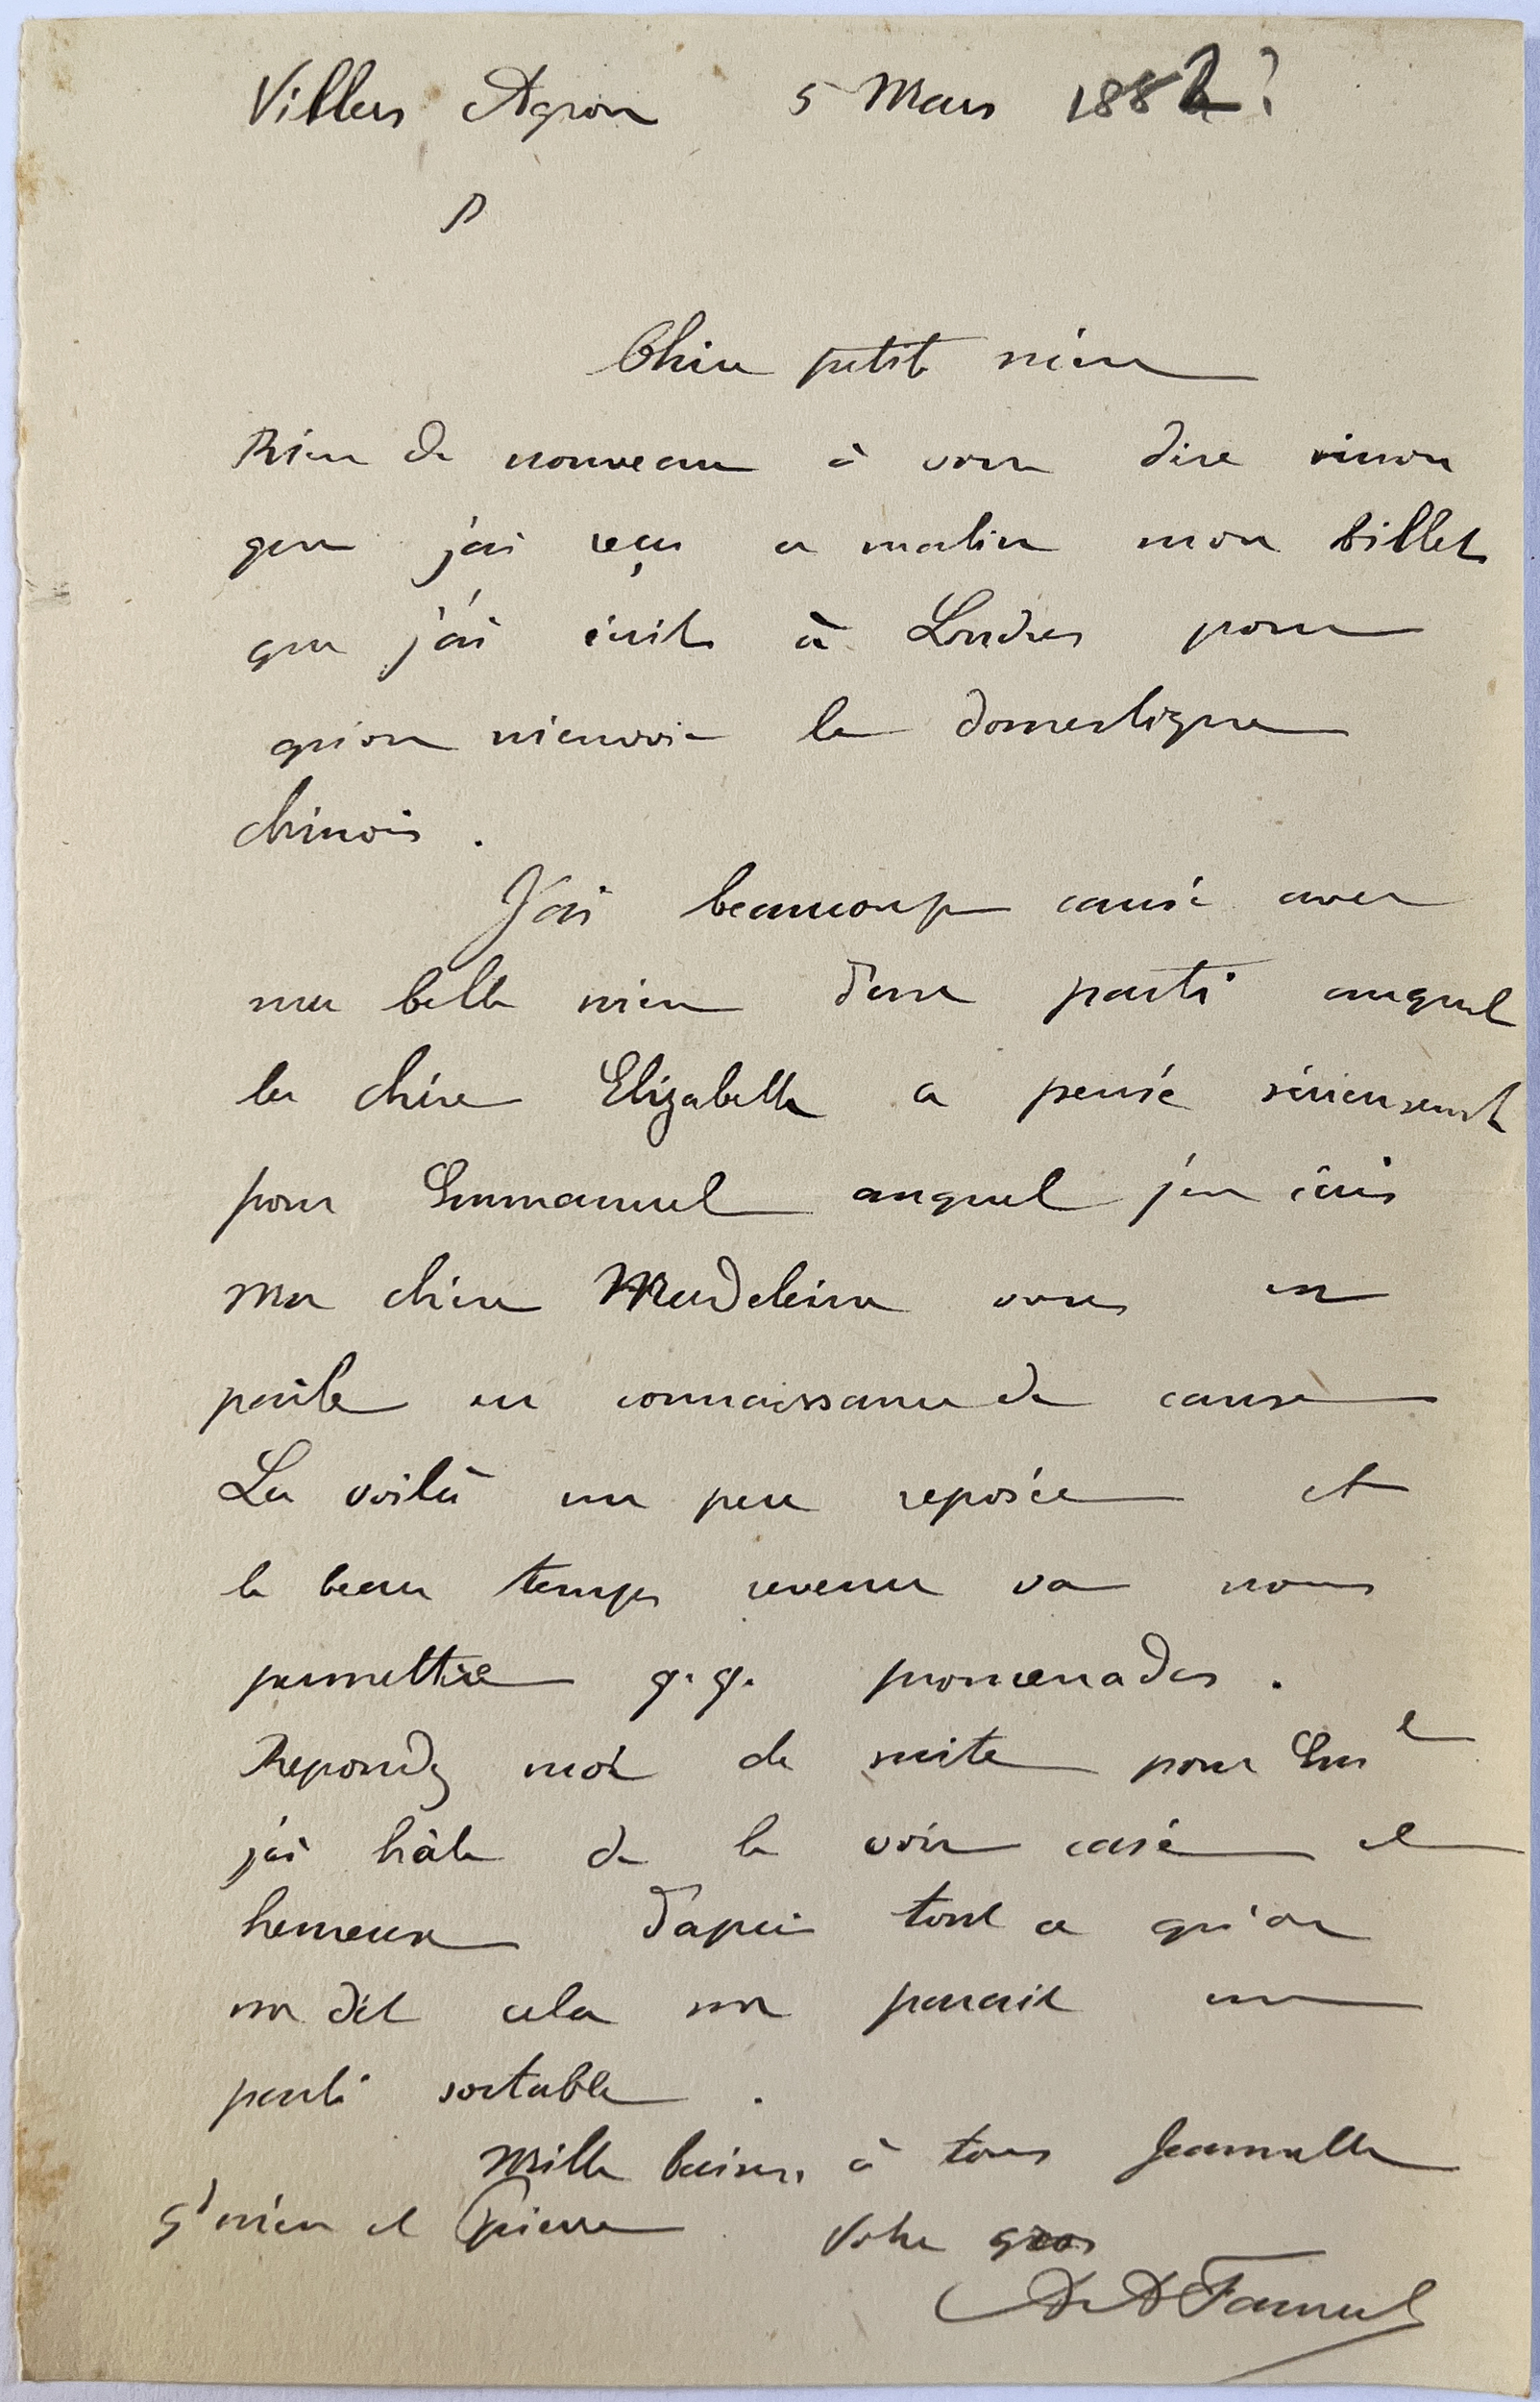 Villers Agron 5 Mars 1882?
Chère petite mère
Rien de nouveau à vous dire sinon
que j'ai reçu ce matin mon billet
que j'ai écrit à Londres pour
qu'on m'envoie le domestique
chinois.
J'ai beaucoup causé avec
ma belle mère d'un parti auquel
la chère Elizabeth a pensé sérieusement
pour Emmanuel auquel j'en écris
Ma chère Madeleine vous en
parle en connaissance de cause
La voilà un peu reposée et
le beau temps revenu va nous
permettre q.q. promenades.
Repondez moi de suite pour Em^l
j'ai hâte de le voir casé et
heureux d'après tout ce qu'on
m'a dit cela me parait un
parti sortable.
Mille baisers à tous Jeannette
G^d mère et Pierre Votre gros